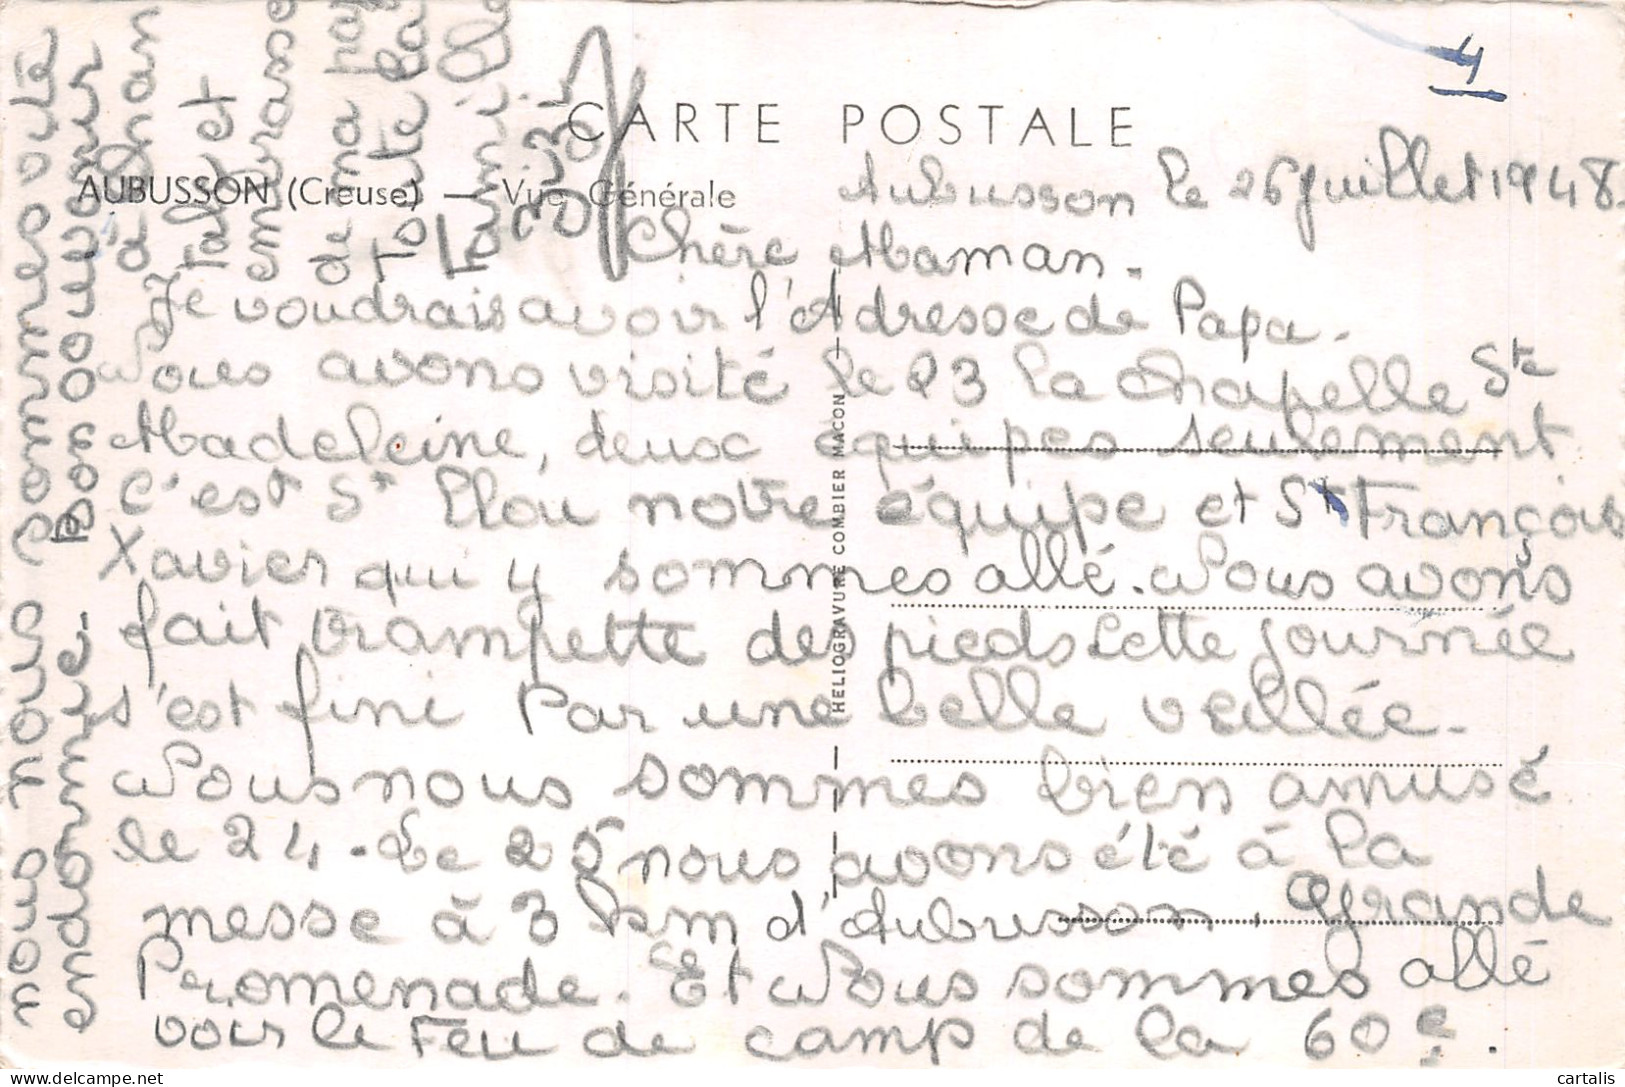 4
CARTE POSTALE
AUBUSSON (Creuse) — Vue Générale
Aubusson le 26 juillet 1948.
Chère Maman.
Je voudrais avoir l'Adresse de Papa.
Nous avons visité le 23 la chapelle Ste
Madeleine, deux équipes seulement
C'est St Elou notre équipe et St François
Xavier qui y sommes allé. Nous avons
fait trempette des pieds Cette journée
s'est fini Par une belle veillée.
Nous nous sommes bien amusé
le 24. Le 25 nous avons été à la
messe à 3 km d'Aubusson. Grande
Promenade. Et Nous sommes allé
voir le Feu de camp de la 60e.
HELIOGRAVURE COMBIER MACON
nous nous sommes
endormie. Bon souvenir
à
et
embrasse
de ma
Toute la
famille
cartalis